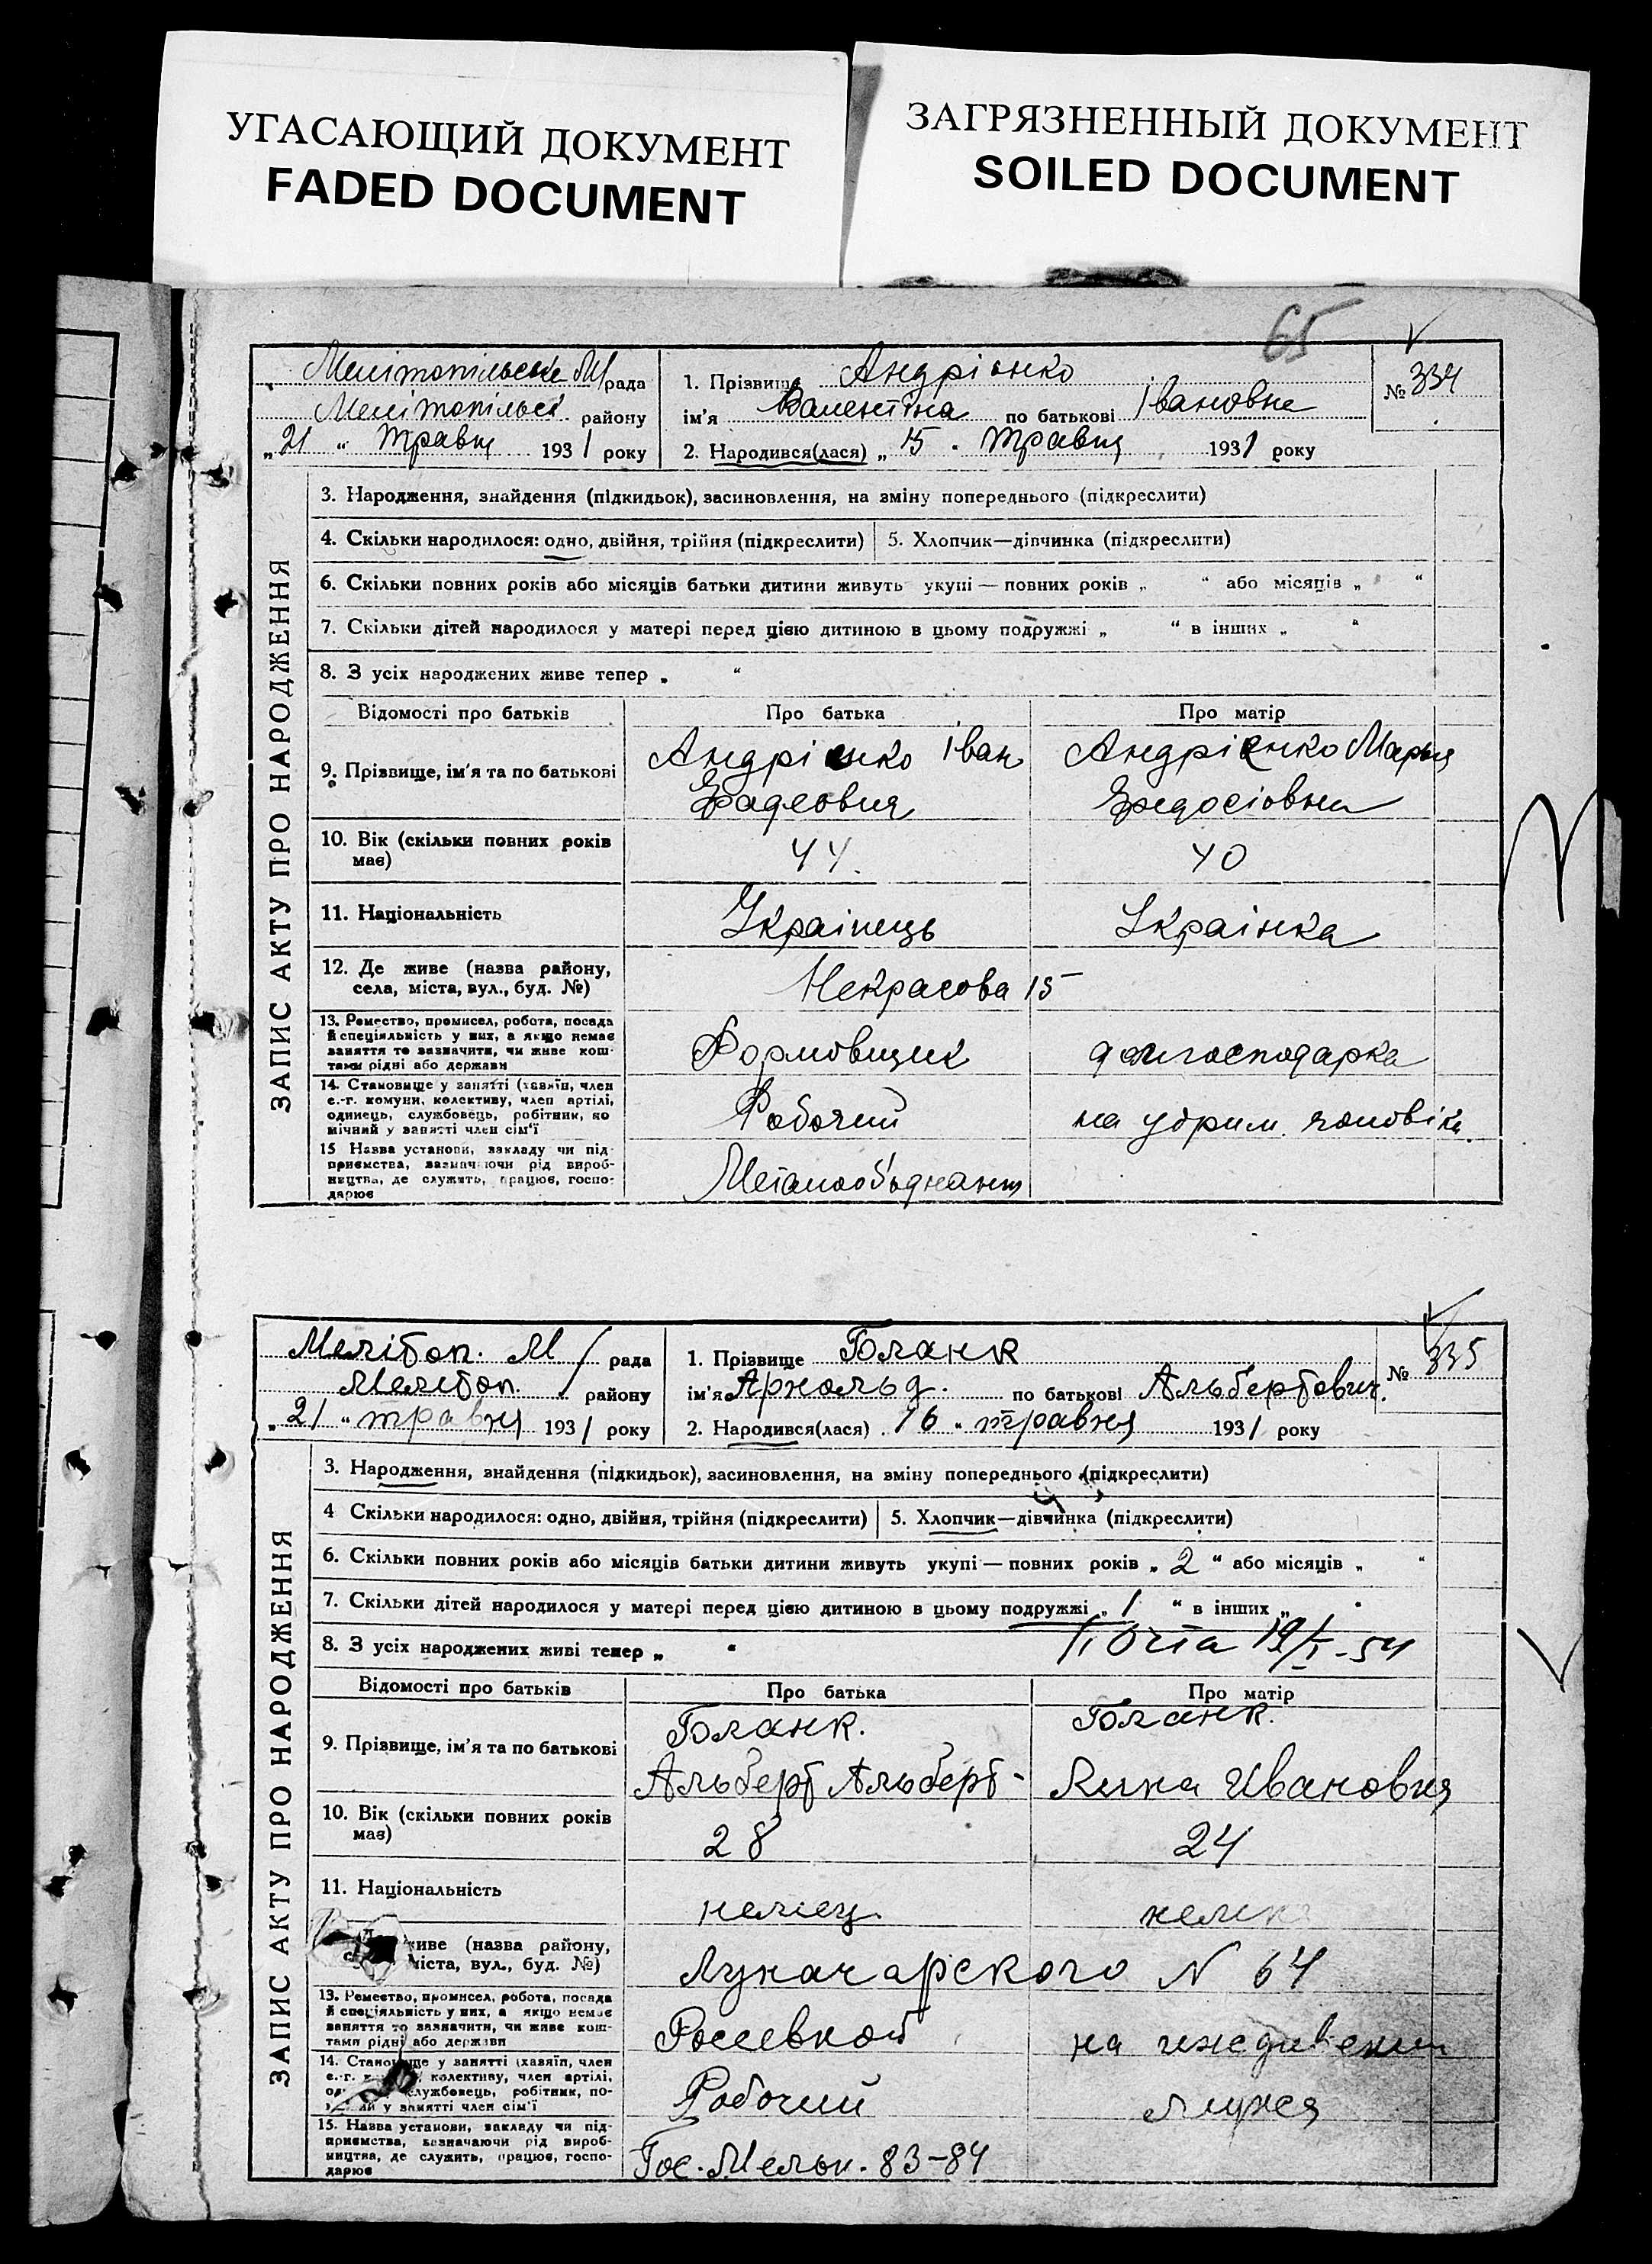 УГАСАЮЩИЙ ДОКУМЕНТ
FADED DOCUMENT
ЗАГРЯЗНЕННЫЙ ДОКУМЕНТ
SOILED DOCUMENT
65
ЗАПИС АКТУ ПРО НАРОДЖЕННЯ
Мелітопільська М/рада
Мелітопільськ району
„21“ травня 1931 року
1. Прізвище Андрієнко
№ 334
ім'я Валентина по батькові Івановна
2. Народився(лася) „15“ травня 1931 року
3. Народження, знайдення (підкидьок), засиновлення, на зміну попереднього (підкреслити)
4. Скільки народилося: одно, двійня, трійня (підкреслити) 5. Хлопчик—дівчинка (підкреслити)
6. Скільки повних років або місяців батьки дитини живуть укупі — повних років „ “ або місяців „ “
7. Скільки дітей народилося у матері перед цією дитиною в цьому подружжі „ “ в інших „ “
8. З усіх народжених живе тепер „ “
Відомості про батьків Про батька Про матір
9. Прізвище, ім'я та по батькові
Андрієнко Іван
Андрієнко Мария
10. Вік (скільки повних років має) 44 40
11. Національність Українець Українка
12. Де живе (назва району, села, міста, вул., буд. №) Некрасова 15
13. Ремество, промисел, робота, посада й спеціяльність у них, а якщо немає заняття то зазначити, чи живе коштами рідні або держави
Формовщик домгосподарка
14. Становище у занятті (хазяїн, член с.-г. комуни, колективу, член артілі, одинець, службовець, робітник, помічний у занятті член сім'ї
Робочий на утрим. чоловіка
15 Назва установи, закладу чи підприємства, зазначаючи рід виробництва, де служить, працює, господарює
ЗАПИС АКТУ ПРО НАРОДЖЕННЯ
Мелітоп. М/рада
Мелітоп. району
„21“ травня 1931 року
1. Прізвище Голанк
№ 335
ім'я Арнольд. по батькові Альбертович.
2. Народився(лася) „16“ травня 1931 року
3. Народження, знайдення (підкидьок), засиновлення, на зміну попереднього (підкреслити)
4 Скільки народилося: одно, двійня, трійня (підкреслити) 5. Хлопчик—дівчинка (підкреслити)
6. Скільки повних років або місяців батьки дитини живуть укупі — повних років „2“ або місяців „ “
7. Скільки дітей народилося у матері перед цією дитиною в цьому подружжі „1“ в інших „ “
8. З усіх народжених живі тепер „ “ Почта 19/I-54
Відомості про батьків Про батька Про матір
9. Прізвище, ім'я та по батькові
Голанк. Голанк.
Альберт Альберт- Ивановна
10. Вік (скільки повних років має) 28 24
11. Національність немец. немк
живе (назва району, міста, вул., буд. №) Луначарского N 64
13. Ремество, промисел, робота, посада й спеціяльність у них, а якщо немає заняття то зазначити, чи живе коштами рідні або держави
на иждивении
14. Становище у занятті (хазяїн, член с.-г. колективу, член артілі, службовець, робітник, по- у занятті член сім'ї
Робочий мужа
15. Назва установи, закладу чи підприємства, зазначаючи рід виробництва, де служить, працює, господарює
Гос. Мельн. 83-84